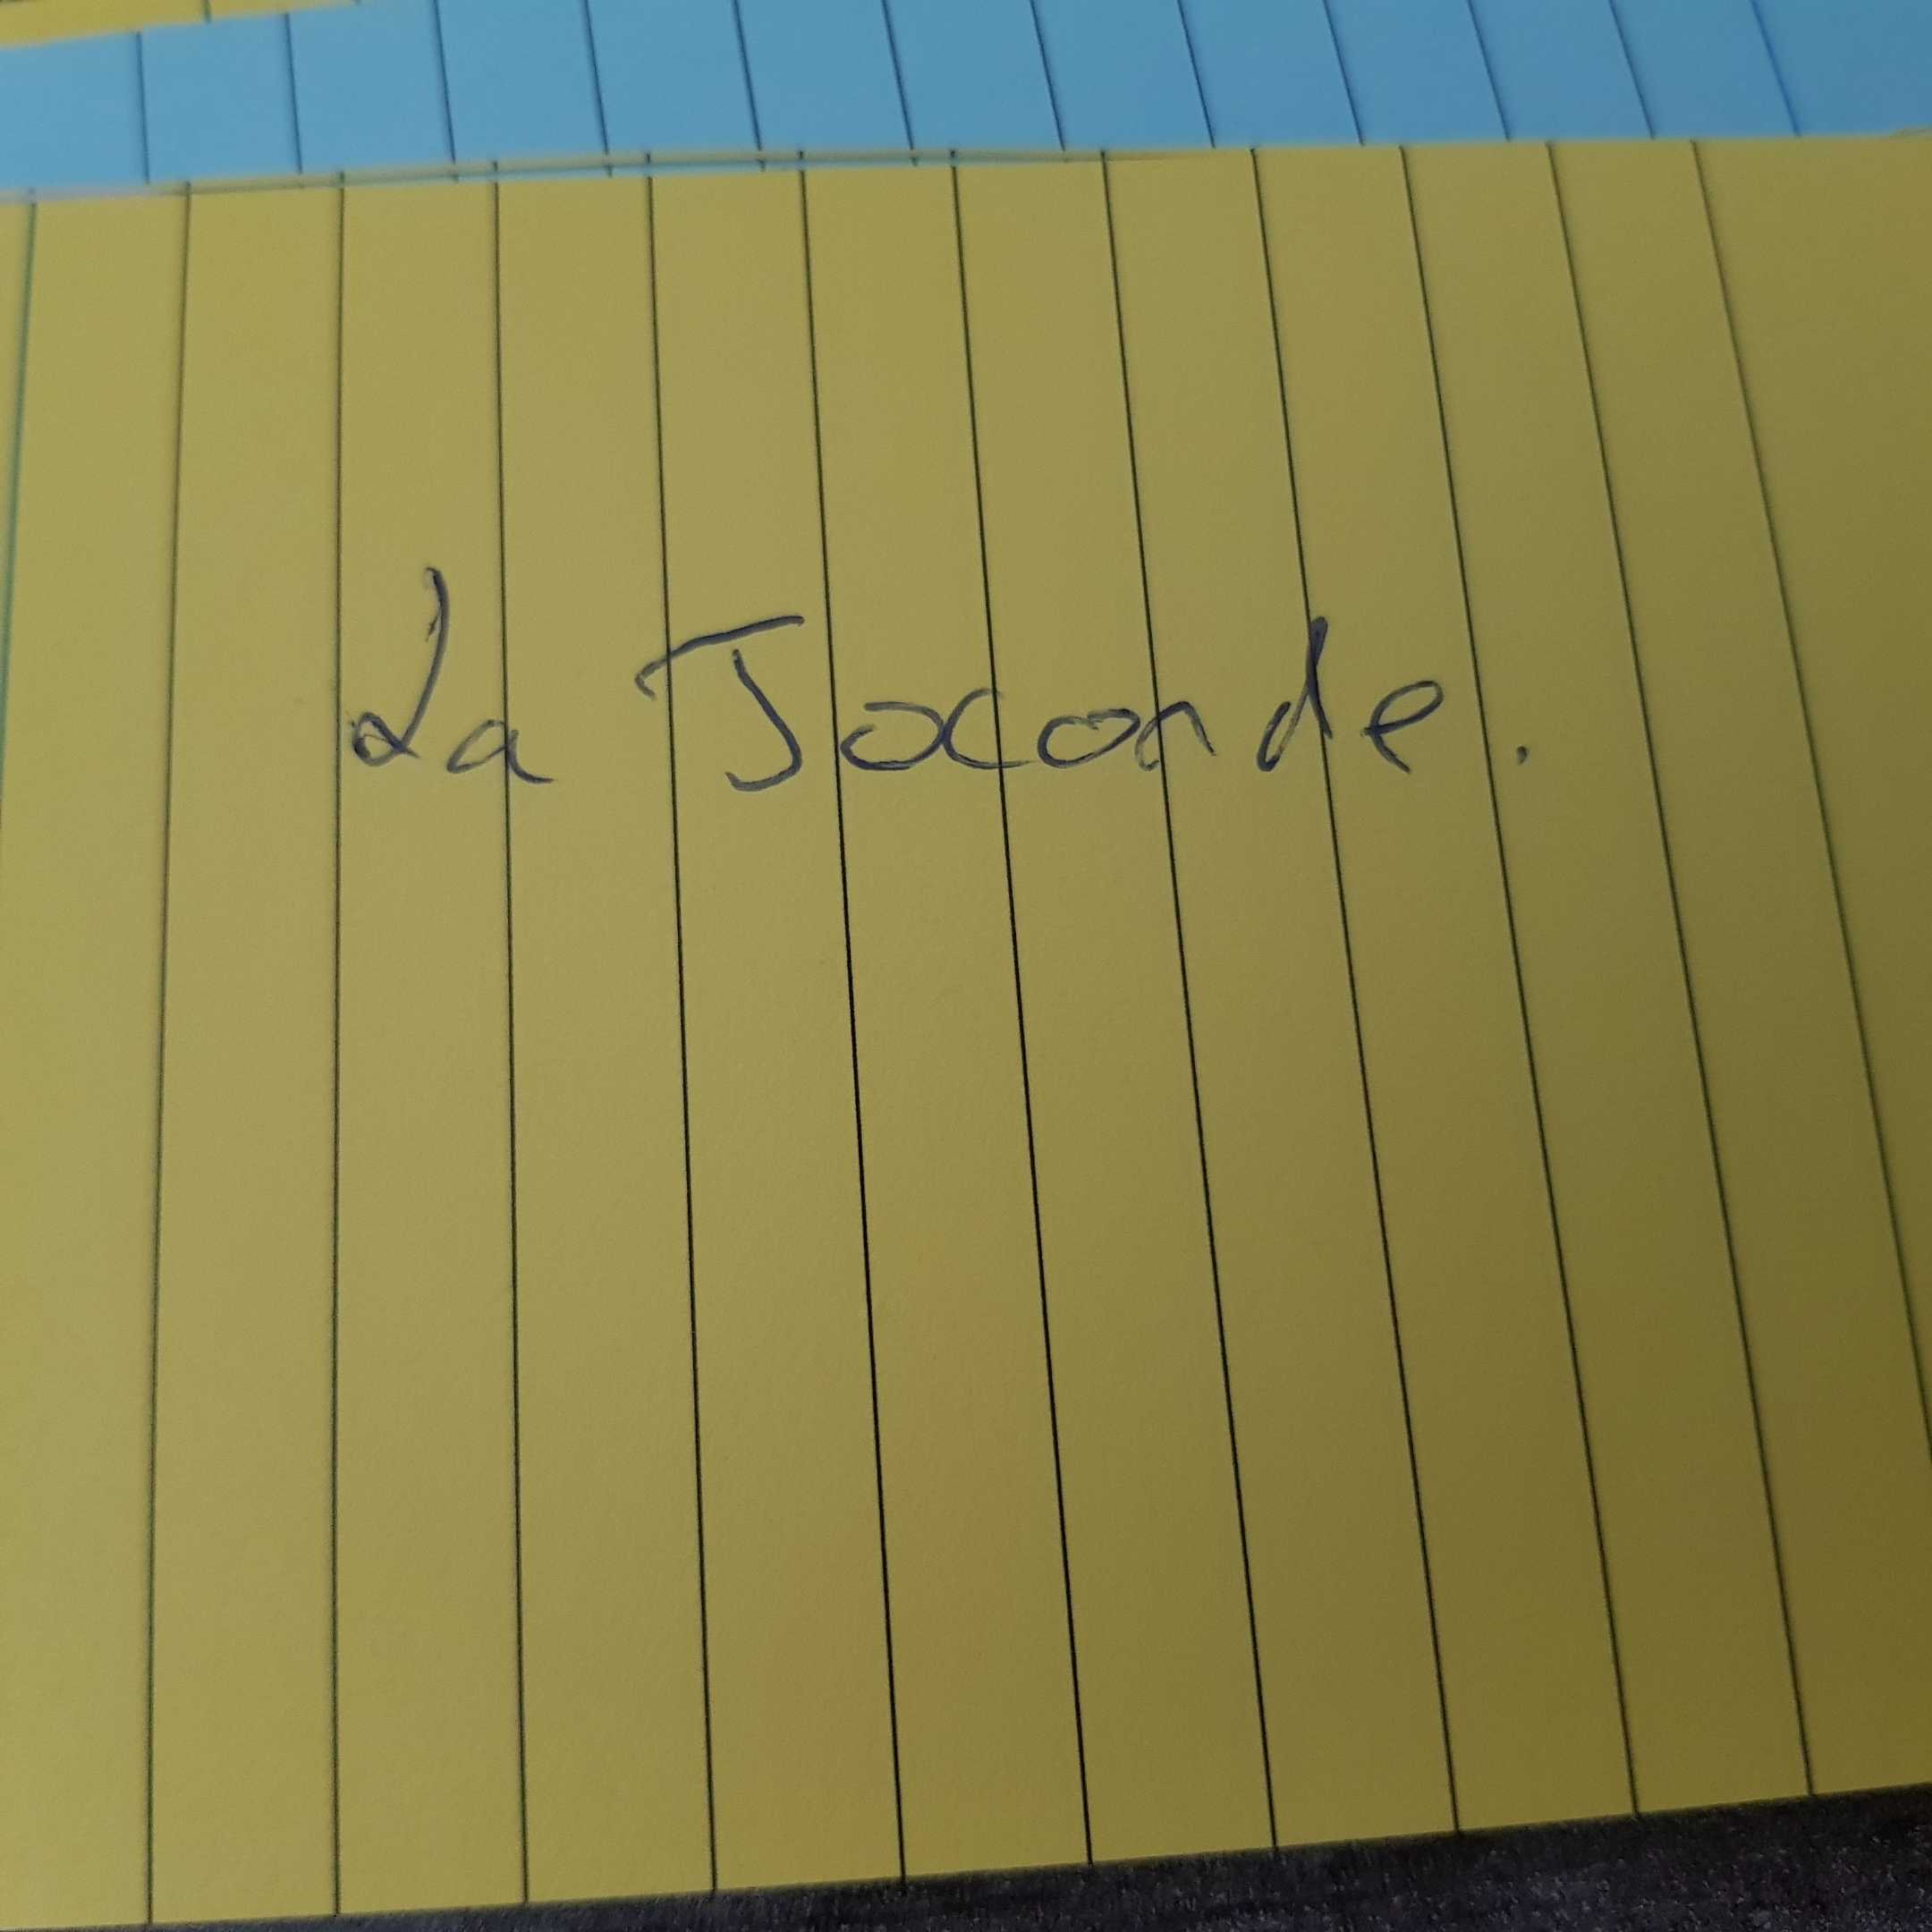 La Joconde.